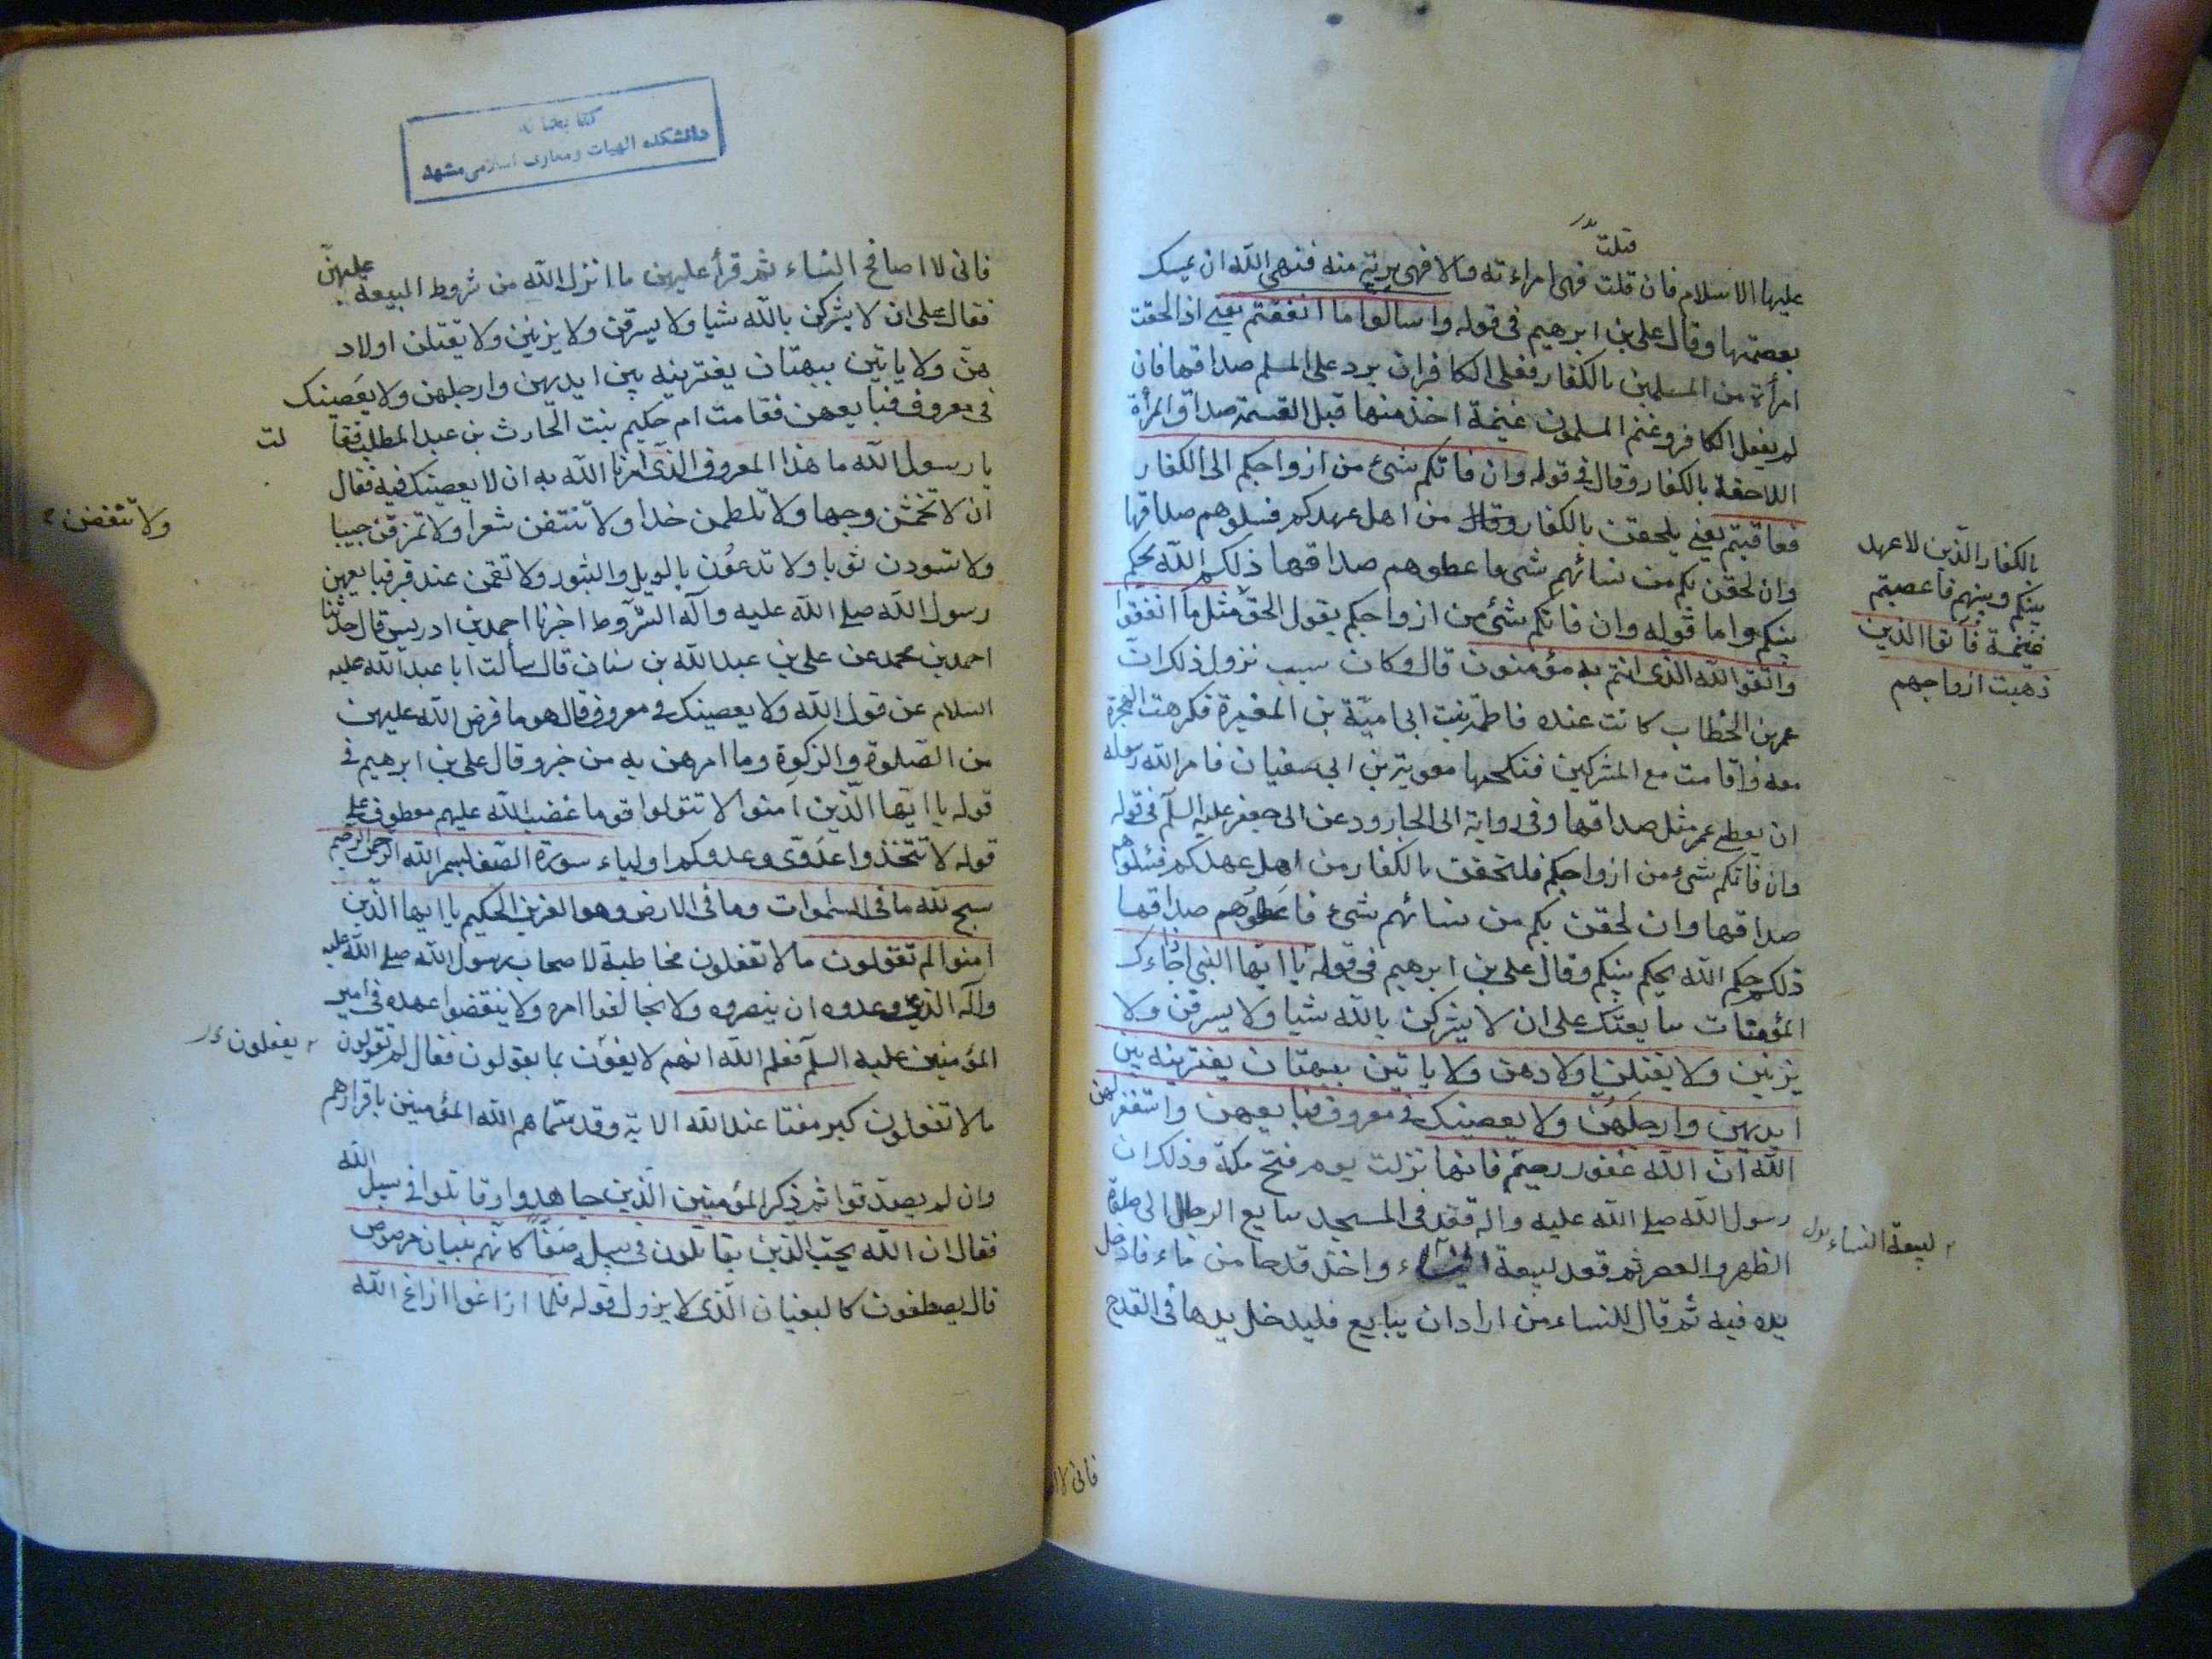 قبلت
عليها الاسلام فان قلت فهى امراءته والا فهى بريّة منه فنهى الله ان يمسك
بعصمتها وقال على بن ابرهيم فى قوله واسالوا ما انفقتم يعنى اذا لحقت
امرأة من المسلمين بالكفار فعلى الكافر ان يرد على المسلم صداقها فان
لم يفعل الكافر وغنم المسلمون غنيمة اخذ منها قبل القسمة صداق المرأة
اللاحقة بالكفار وقال فى قوله وان فاتكم شئ من ازواجكم الى الكفار
فعاقبتم يعنى يلحقن بالكفار وقال من اهل عهدكم فسلوهم صداقها
وان لحقن بكم من نسائهم شى ما عطوهم صداقها ذلكم الله يحكم
بينكم واما قوله وان فاتكم شئ من ازواجكم يقول الحق مثل ما انفقوا
واتقوا الله الذى انتم به مؤمنون قال وكان سبب نزول ذلك ان
عمر بن الخطاب كانت عنده فاطمة بنت ابى اميّة بن المغيرة فكرهت الهجرة
معه واقامت مع المشركين فنكحها معوية بن ابى سفيان فامر الله رسوله
ان يعطى عمر مثل صداقها وفى رواية ابى الجارود عن ابى جعفر عليه السلم فى قوله
وان فاتكم شئ من ازواجكم فلحقن بالكفار من اهل عهدكم فسئلوهم
صداقها وان لحقن بكم من نسائهم شئ فاعطوهم صداقها
ذلكم حكم الله يحكم بينكم وقال على بن ابرهيم فى قوله يا ايّها النبى اذا جاءك
المؤمنات يبايعنك على ان لا يشركن بالله شيا ولا يسرقن ولا
يزنين ولا يقتلن اولادهن ولا ياتين ببهتان يفترينه بين
ايديهن وارجلهن ولا يعصينك فى معروف فبايعهن واستغفر لهن
الله ان الله غفور رحيم فانها نزلت يوم فتح مكة وذلك ان
رسول الله صلى الله عليه واله قعد فى المسجد يبايع الرجال الى صلوة
الظهر والعصر ثم قعد لبيعة النساء واخذ قدحا من ماء فادخل
يده فيه ثم قال للنساء من اراد ان يبايع فليدخل يدها فى القدح
بالكفار الّذين لا عهد
بينكم وبينهم فاصبتم
غنيمة فآتوا الّذين
ذهبت ازواجهم
لبيعة النساء
كتابخانه
دانشكده الهيات ومعارف اسلامى مشهد
فانى لا اصافح النساء ثم قرأ عليهن ما انزل الله من شروط البيعة عليهنّ
فقال على ان لا يشركن بالله شيا ولا يسرقن ولا يزنين ولا يقتلن اولاد
هن ولا ياتين ببهتان يفترينه بين ايديهن وارجلهن ولا يعصينك
فى معروف فبايعهن فقامت ام حكيم بنت الحارث بن عبد المطلب فقا لت
يا رسول الله ما هذا المعروف الذى امرنا الله به ان لا يعصينك فيه فقال
ان لا تخمشن وجها ولا تلطمن خدا ولا تنتفن شعرا ولا تمزقن جيبا
ولا تسودن ثوبا ولا تدعون بالويل والثبور ولا تقمن عند قبر فبايعهن
رسول الله صلى الله عليه وآله الشروط اخبرنا احمد بن ادريس قال حدثنا
احمد بن محمد عن على بن عبد الله بن سنان قال سألت ابا عبد الله عليه
السلام عن قول الله ولا يعصينك فى معروف قال هو ما فرض الله عليهن
من الصّلوة والزكوة وما امرهن به من خير وقال على بن ابرهيم فى
قوله يا ايّها الّذين امنوا لا تتولوا قوما غضب الله عليهم معطوف على
قوله لا تتخذوا عدوّى وعدوكم اولياء سورة الصّف بسم الله الرحمن الرحيم
سبح لله ما فى السموات وما فى الارض وهو العزيز الحكيم يا ايها الّذين
امنوا لم تقولون ما لا تفعلون مخاطبة لاصحاب رسول الله صلى الله عليه
واله الذين وعدوه ان ينصروه ولا يخالفوا امره ولا ينقضوا عهده فى امير
المؤمنين عليه السلم فعلم الله انهم لا يفون بما يقولون فقال لم تقولون
ما لا تفعلون كبر مقتا عند الله الاية وقد سمّاهم الله المؤمنين باقرارهم
وان لم يصدقوا ثم ذكر المؤمنين الّذين جاهدوا وقاتلوا فى سبيل الله
فقال ان الله يحبّ الذين يقاتلون فى سبيله صفّا كانهم بنيان مرصوص
قال يصطفون كالبنيان الّذى لا يزول قوله فلما ازاغوا ازاغ الله
ولا تنقضن
يفعلون
فانى لا ا